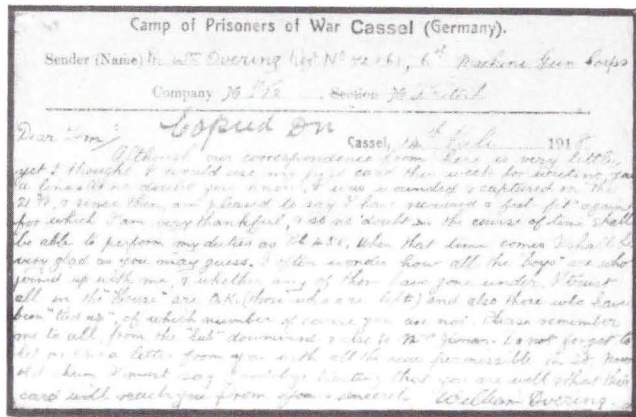 Camp of Prisoners of War Cassel (Germany).
Sender (Name) Wm Overing Regt No Machine Gun Corps
Company Section
Copied On
Cassel, 14th 1918
Dear
Although our correspondence from here is very little,
yet I thought I would use my card this week for writing you
a line. As no doubt you know, I was wounded & captured on the
21st, & since then, am pleased to say I have received a feel fit again
for which I am very thankful, & so no doubt in the course of time shall
be able to perform my duties as PC 456, when that time comes I shall be
very glad as you may guess. I often wonder how all the "boys" are who
joined up with me, & whether any of them have gone under, I trust
all in the are O.K. (those who are left) and also those who have
been of which number of course you are not. Please remember
me to all, from the "Sub" downward & also to Mr Do not forget to
let me have a letter from you with all the news permissible in it.
old chum I must say trusting that you are well & that this
card will reach you from yours sincerely William Overing.